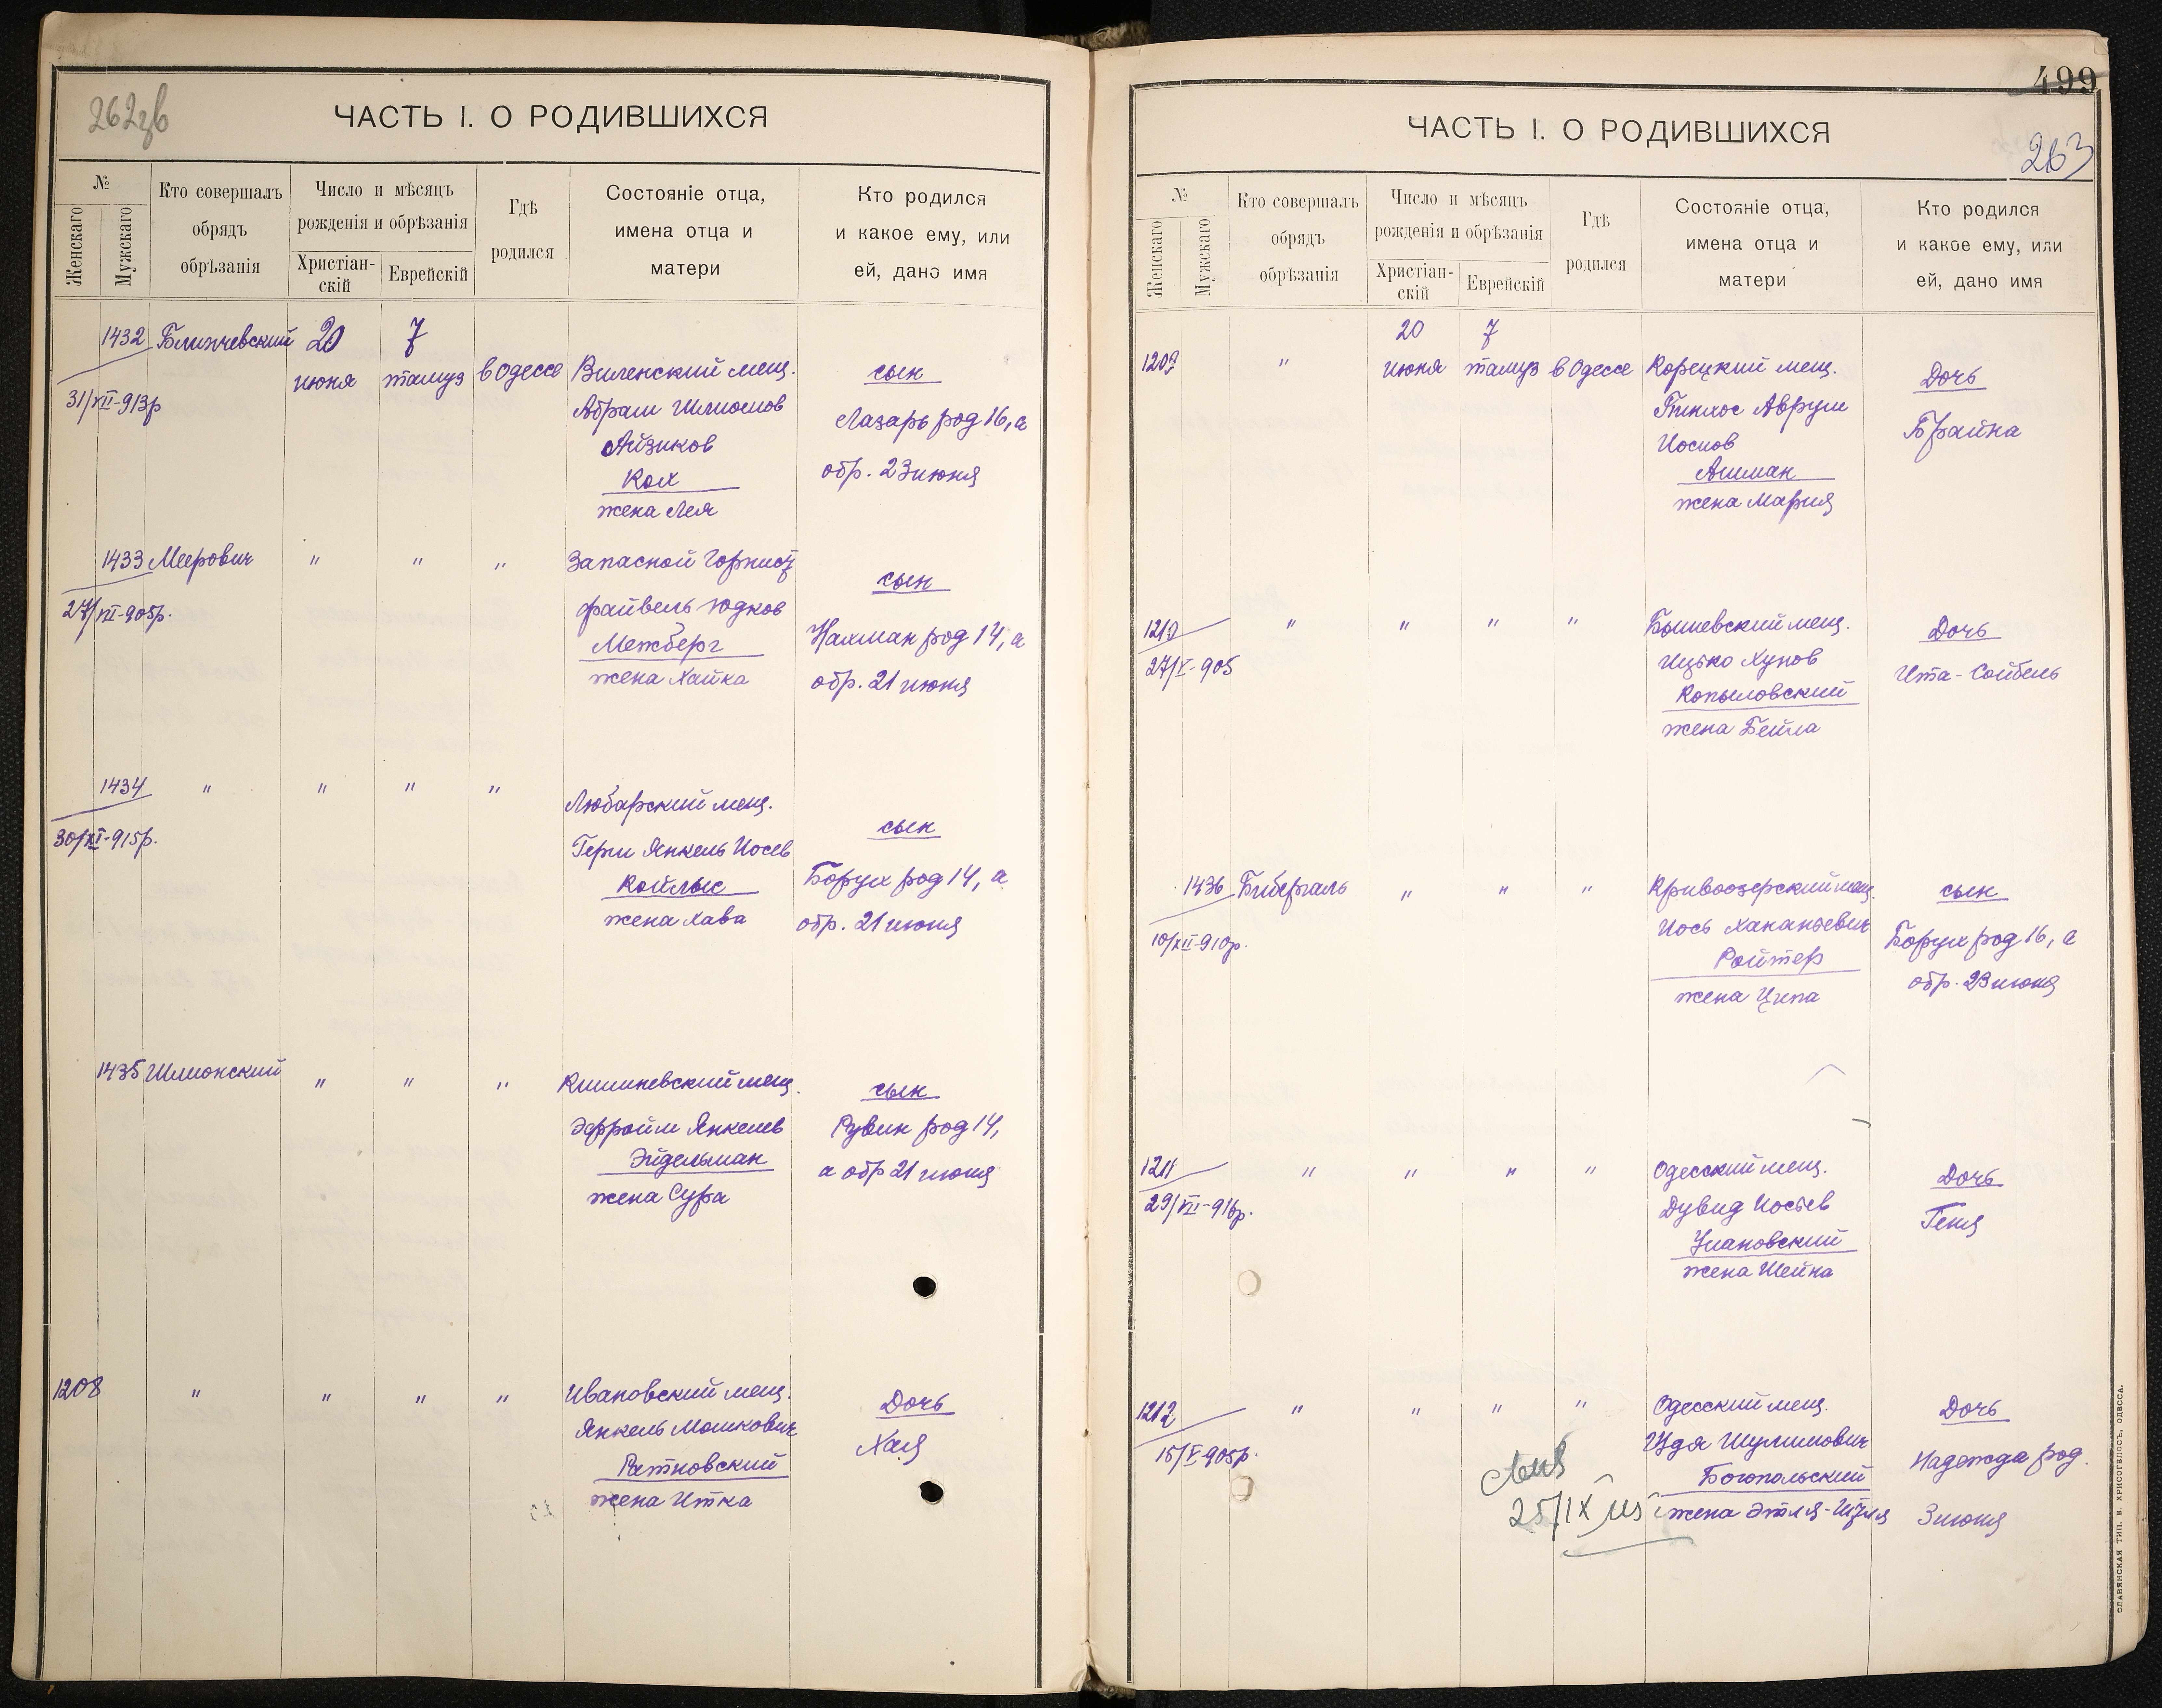 262зв
ЧАСТЬ I. О РОДИВШИХСЯ
№
Женскаго
Мужскаго
Кто совершалъ
обрядъ
обрѣзанія
Число и мѣсяцъ
рожденія и обрѣзанія
Христіан-
скій
Еврейскій
Гдѣ
родился
Состояніе отца,
имена отца и
матери
Кто родился
и какое ему, или
ей, дано имя
1432
31/XII-913р
20
июня
7
тамуз
в Одессе
Виленский мещ.
Абрам Шлиомов
Айзиков
Кох
жена Лея
сын
Лазарь род 16, а
обр. 23 июня
1433 Меерович
27/VII-905р.
"
"
"
Запасной Горнист
Файвель Юдков
Межберг
жена Хайка
сын
Нахман род 14, а
обр. 21 июня
1434
30/XI-915р.
"
"
"
"
Любарский мещ.
Герш Янкель Иосев
Койлыс
жена Хава
сын
Борух род 14, а
обр. 21 июня
1435 Шлионский
"
"
"
Кишиневский мещ.
Эфройм Янкелев
Эйдельман
жена Сура
сын
Рувин род 14,
а обр 21 июня
1208
"
"
"
"
Ивановский мещ.
Янкель Мошкович
Ратновский
жена Итка
Дочь
Хая
499
263
ЧАСТЬ I. О РОДИВШИХСЯ
№
Женскаго
Мужскаго
Кто совершалъ
обрядъ
обрѣзанія
Число и мѣсяцъ
рожденія и обрѣзанія
Христіан-
скій
Еврейскій
Гдѣ
родился
Состояніе отца,
имена отца и
матери
Кто родился
и какое ему, или
ей, дано имя
1209
"
20
июня
7
тамуз
в Одессе
Корецкий мещ.
Пинхос Аврум
Иосиов
Ашман
жена Мария
Дочь
Брайна
1210
27/V-905
"
"
"
"
мещ.
Ицько Хунов
Копыловский
жена Бейла
Дочь
Ита-Сойбель
1436 Бибергаль
10/XII-910р.
"
"
"
Кривоозерский мещ.
Иось Хананьевич
Ройтер
жена Ципа
сын
Борух род 16, а
обр. 23 июня
1211
29/VII-916р.
"
"
"
"
Одесский мещ.
Дувид Иосьев
Улановский
жена Шейна
Дочь
Геня
1212
15/V-905р.
"
"
"
"
Одесский мещ.
Идя Шулимович
Богопольский
жена Этля-
Дочь
Надежда род.
3 июня
25/IX
СЛАВЯНСКАЯ ТИП. Н. ХРИСОГЕЛОСЪ, ОДЕССА.